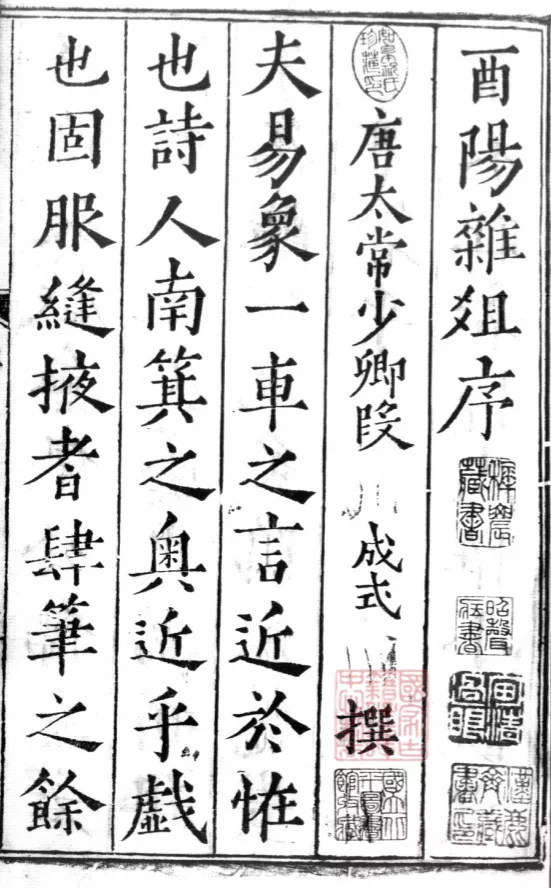 酉陽雜爼序
唐太常少卿段成式撰
夫易象一車之言近於恠
也詩人南箕之奧近乎戯
也固服縫掖者肆筆之餘